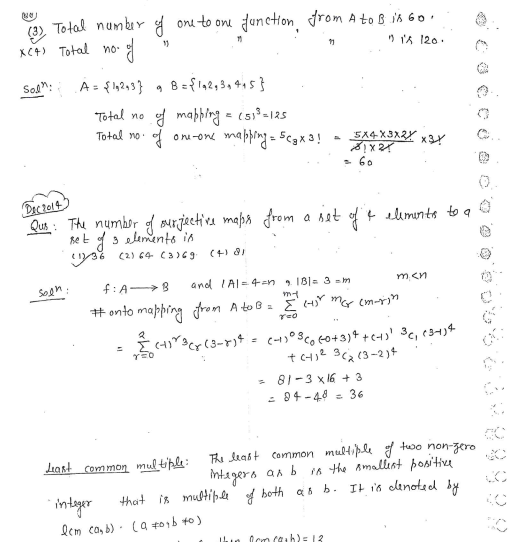 (No)
(3) Total number of one to one function, from A to B is 60.
x(4) Total no. of " " " " is 120.
Solⁿ: A = {1,2,3} , B = {1,2,3,4,5}
Total no of mapping = (5)³ = 125
Total no. of one-one mapping = 5c₃ x 3! = 5x4x3x2! / 3! x 2! x 3!
= 60
Dec 2014
Qus: The number of surjective maps from a set of 4 elements to a
set of 3 elements is
(1) 36 (2) 64 (3) 69 (4) 81
Solⁿ: f: A → B and |A| = 4 = n , |B| = 3 = m m<n
# onto mapping from A to B = Σ_{r=0}^{m-1} (-1)^r mcr (m-r)ⁿ
= Σ_{r=0}^{2} (-1)^r 3cr (3-r)⁴ = (-1)⁰ 3c₀ (-0+3)⁴ + (-1)¹ 3c₁ (3-1)⁴
+ (-1)² 3c₂ (3-2)⁴
= 81 - 3 x 16 + 3
= 84 - 48 = 36
Least common multiple: The least common multiple of two non-zero
integers a & b is the smallest positive
integer that is multiple of both a & b. It is denoted by
lcm (a,b). (a ≠ 0, b ≠ 0)
then lcm (a,b) = 12